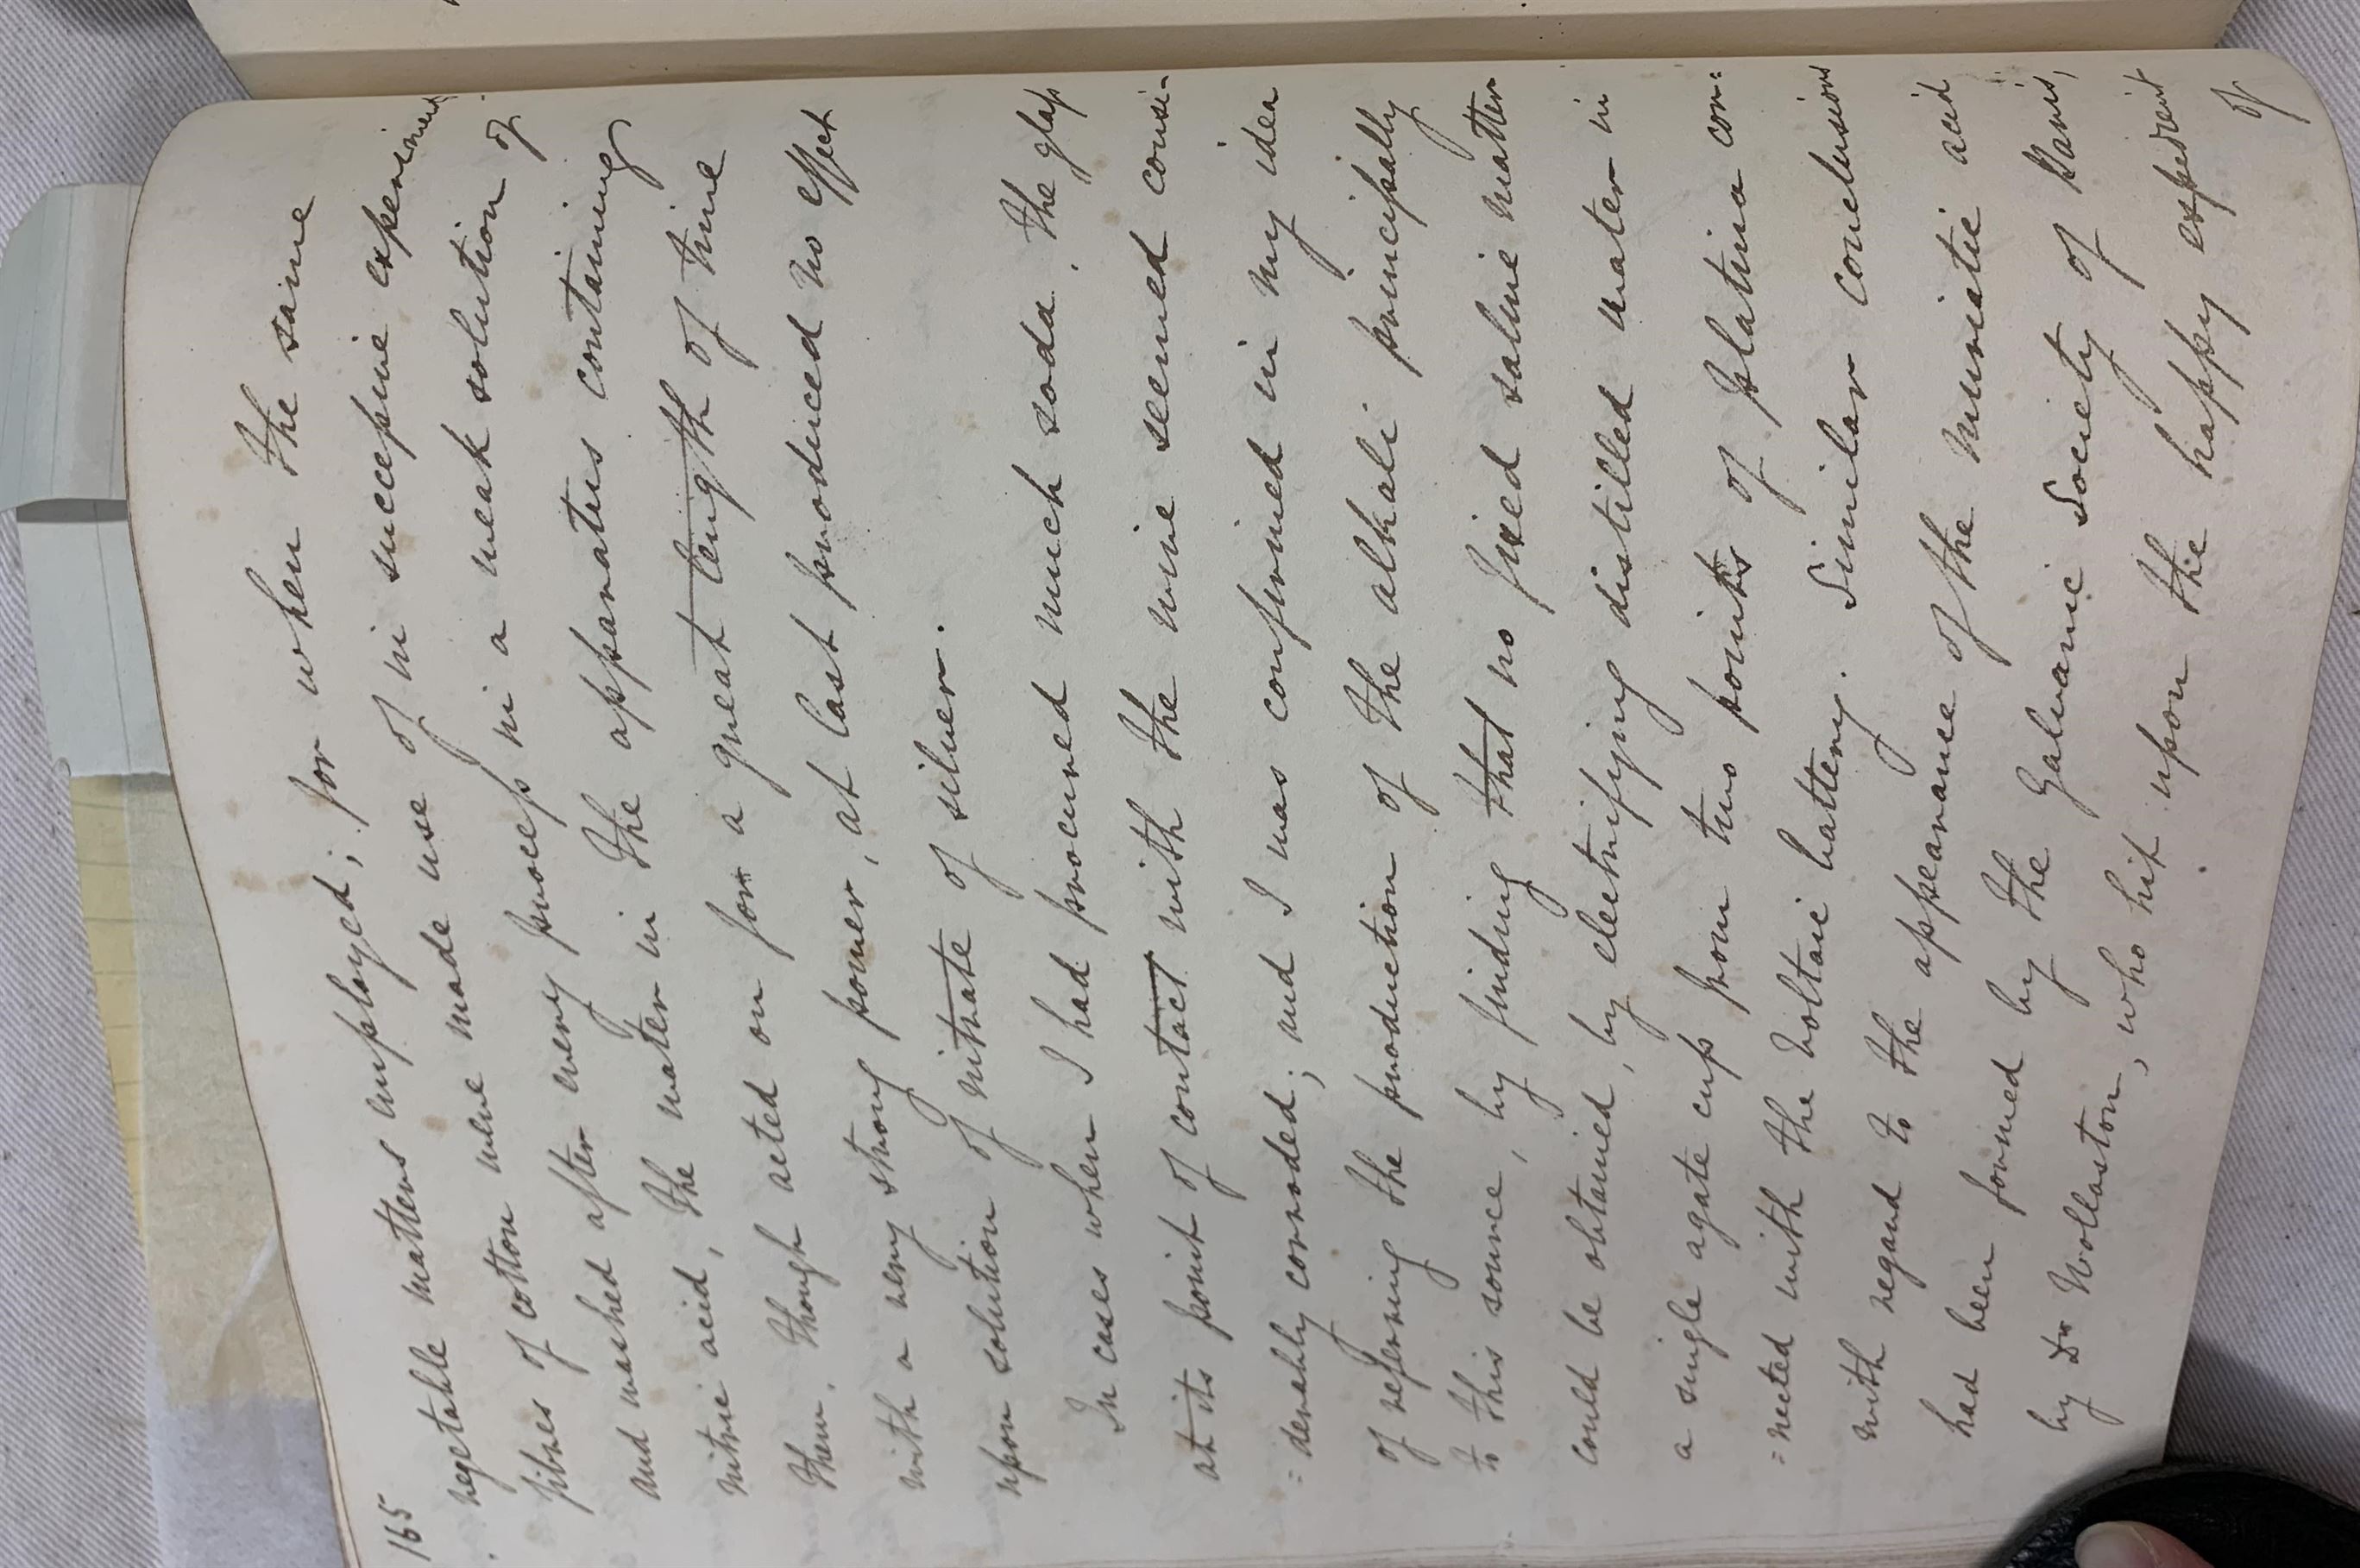 165
vegetable matters employed; for when the same
fibres of cotton were made use of in successive experiments
and washed after every process in a weak solution of
nitric acid, the water in the apparatus containing
them, though acted on for a great length of time
with a very strong power, at last produced no effect
upon solution of nitrate of silver.
In cases when I had procured much soda, the glass
at its point of contact with the wire seemed consi-
=derably corroded; and I was confirmed in my idea
of referring the production of the alkali principally
to this source, by finding that no fixed saline matter
could be obtained, by electrifying distilled water in
a single agate cup from two points of platina con:
=nected with the Voltaic battery. Similar conclusions
with regard to the appearance of the muriatic acid
had been formed by the Galvanic Society of Paris,
by Dr Wollaston, who hit upon the happy expedient
of